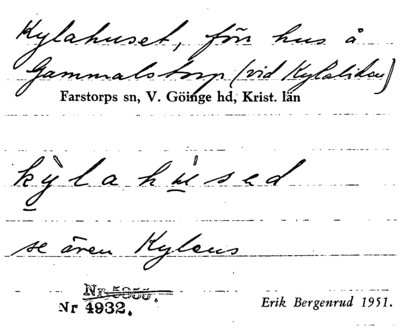 Kylahuset, förr hus å
Gammalstorp (vid Kylalidas)
Farstorps sn, V. Göinge hd, Krist. län
kỳlahùsed
se även Kylens
Nr 5056.
Nr 4932.
Erik Bergenrud 1951.